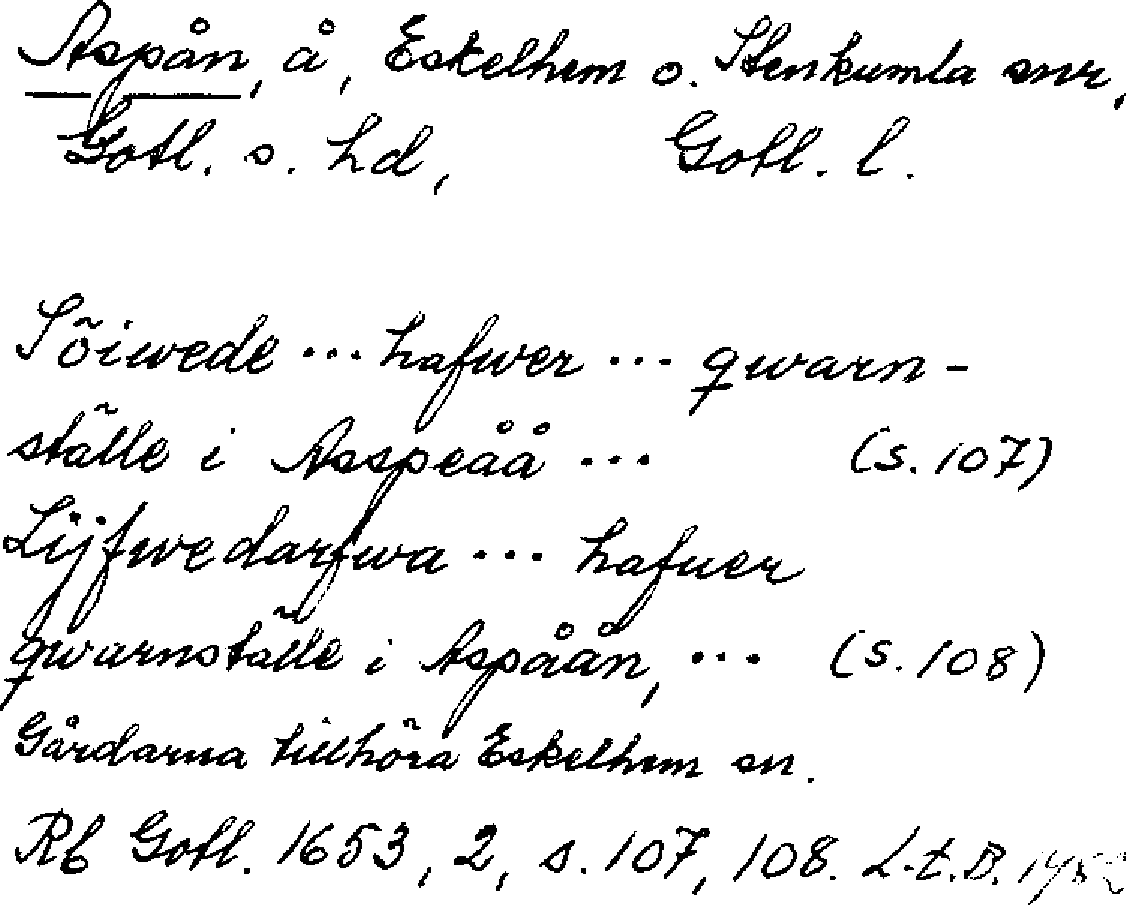 Aspån, å, Eskelhem o. Stenkumla snr,
Gotl. s. hd, Gotl. l.
Söiwede ... hafwer ... qwarn-
ställe i Asspeåå ... (s. 107)
Lijfwedarfwa ... hafuer
qwarnställe i Aspåån, ... (s. 108)
Gårdarna tillhöra Eskelhem sn.
Rb Gotl. 1653, 2, s. 107, 108. L.t.B. 1952